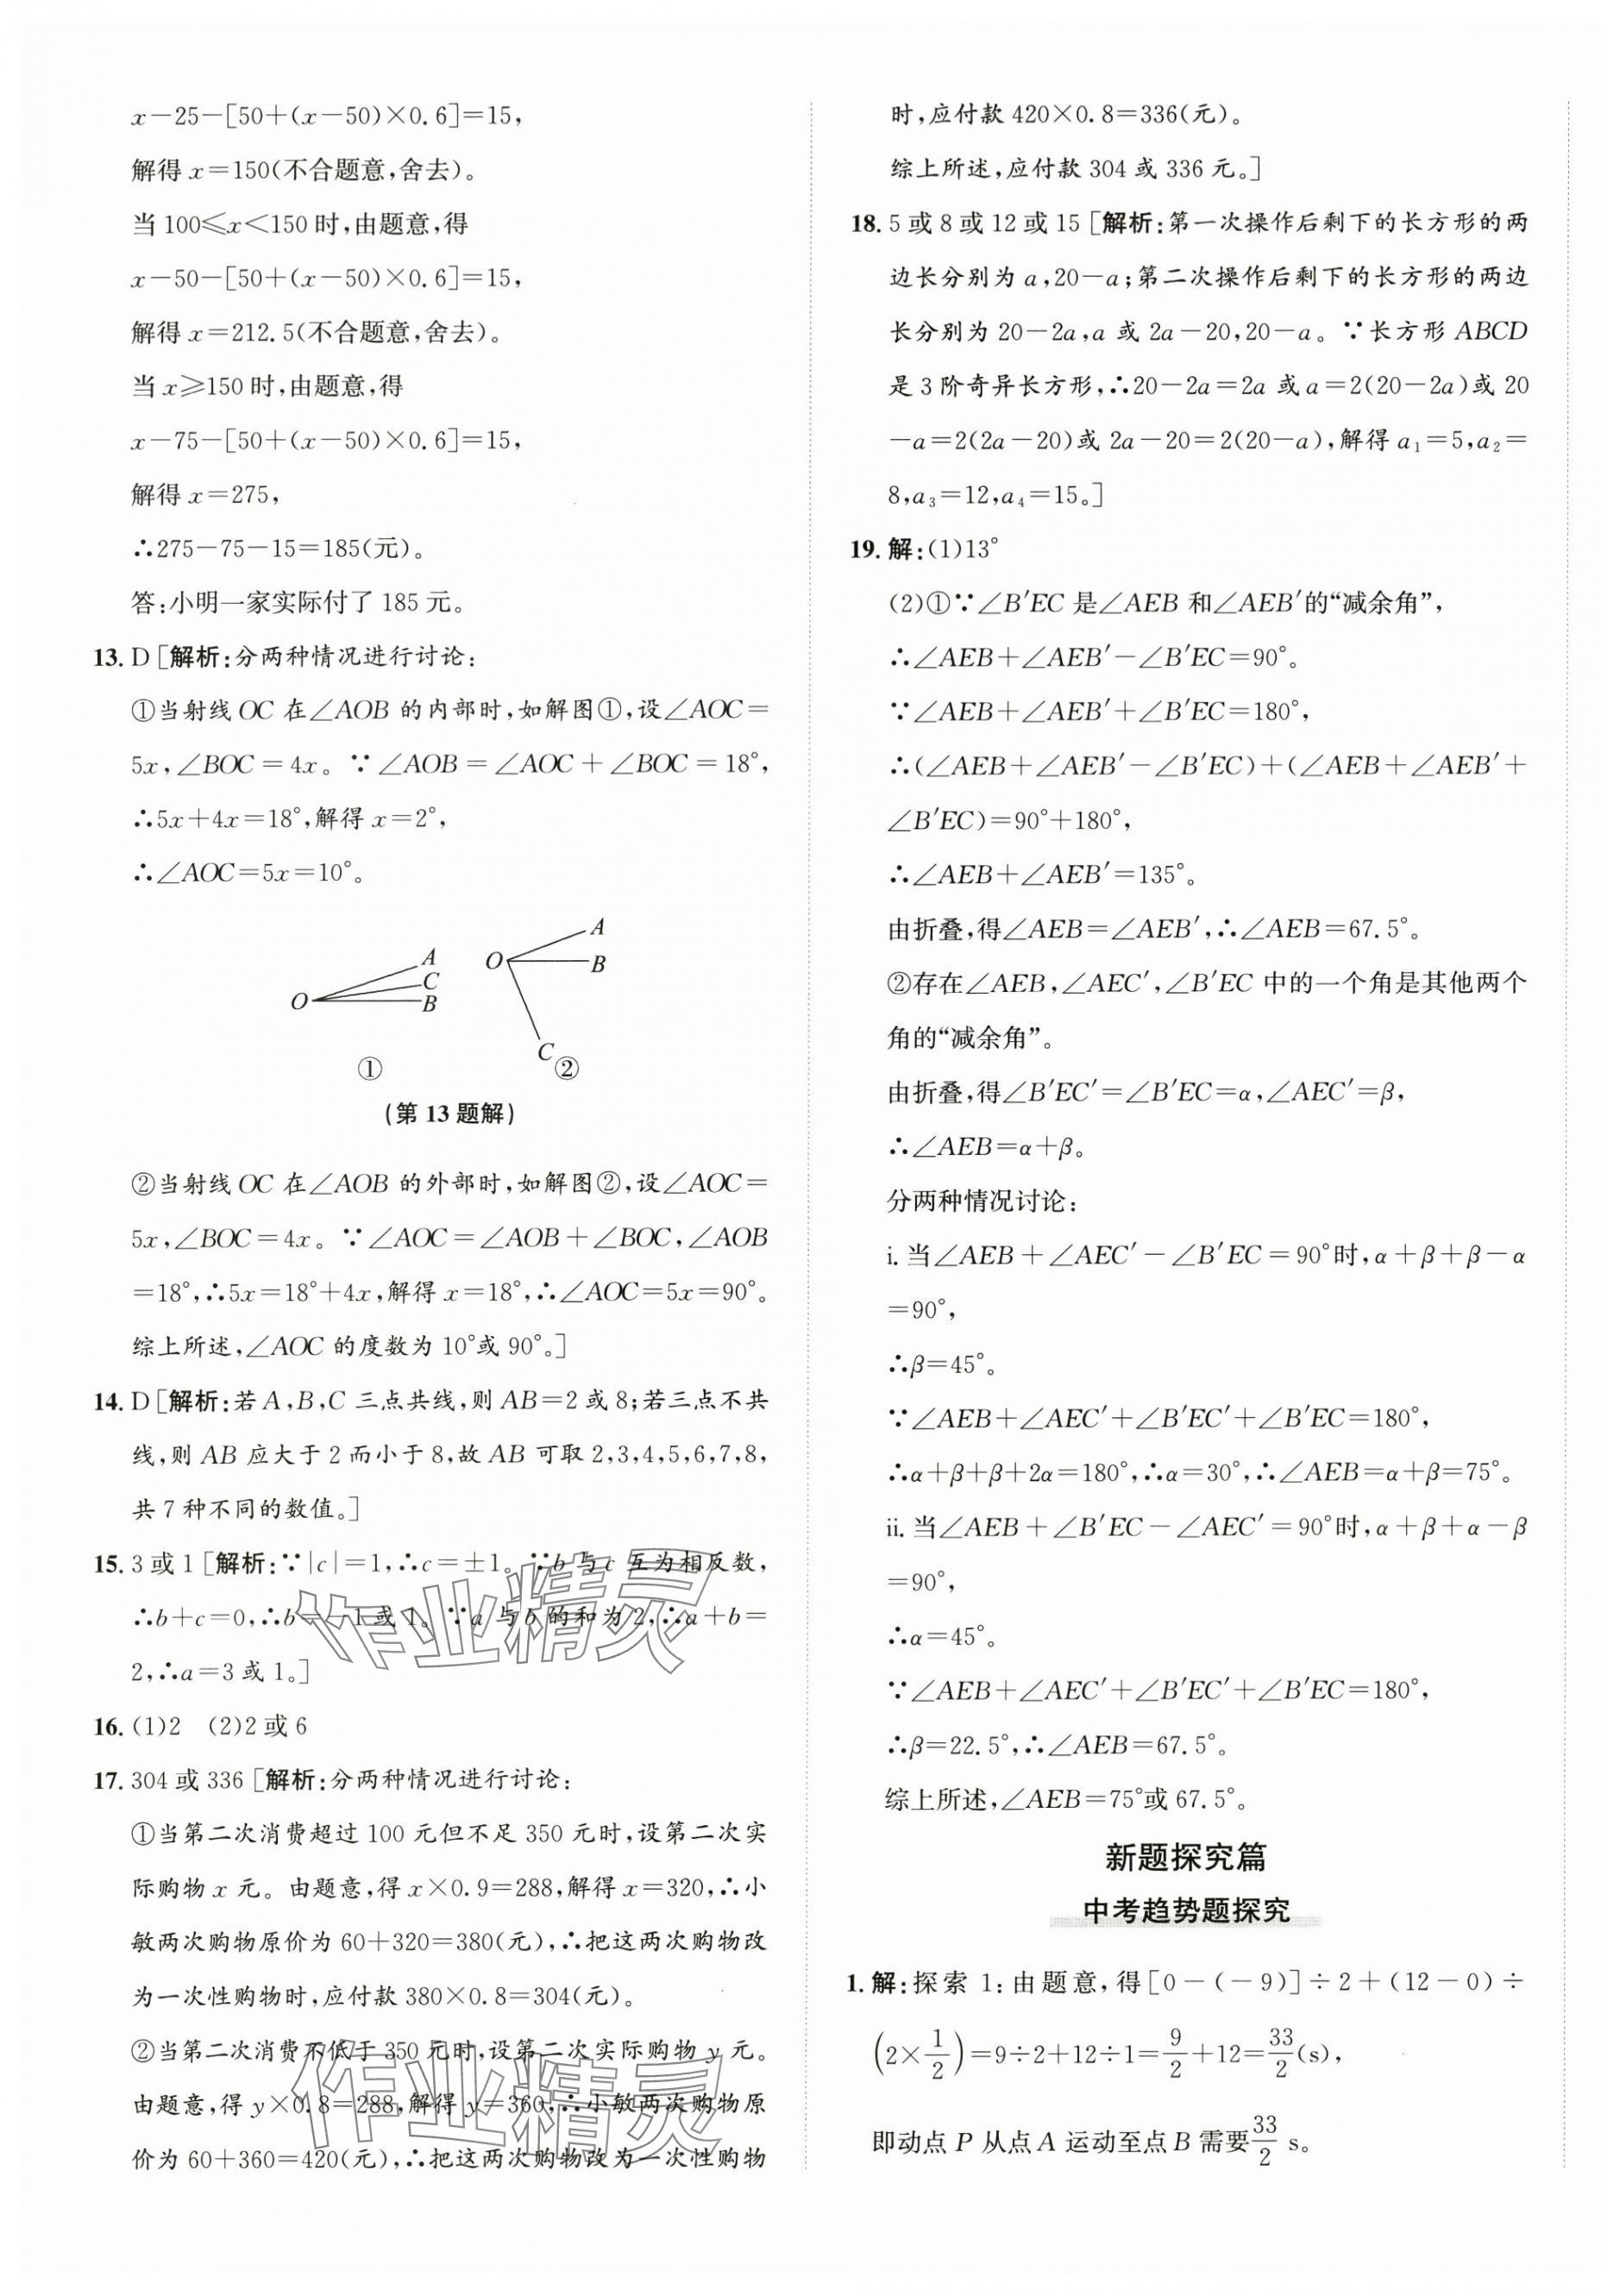 x－25－[50＋(x－50)×0.6]＝15,
解得 x＝150(不合题意,舍去)。
当 100≤x＜150 时,由题意,得
x－50－[50＋(x－50)×0.6]＝15,
解得 x＝212.5(不合题意,舍去)。
当 x≥150 时,由题意,得
x－75－[50＋(x－50)×0.6]＝15,
解得 x＝275,
∴275－75－15＝185(元)。
答:小明一家实际付了 185 元。
13. D [解析:分两种情况进行讨论:
①当射线 OC 在∠AOB 的内部时,如解图①,设∠AOC＝
5x,∠BOC＝4x。∵∠AOB＝∠AOC＋∠BOC＝18°,
∴5x＋4x＝18°,解得 x＝2°,
∴∠AOC＝5x＝10°。
O A C B ①
O A B C ②
(第 13 题解)
②当射线 OC 在∠AOB 的外部时,如解图②,设∠AOC＝
5x,∠BOC＝4x。∵∠AOC＝∠AOB＋∠BOC,∠AOB
＝18°,∴5x＝18°＋4x,解得 x＝18°,∴∠AOC＝5x＝90°。
综上所述,∠AOC 的度数为 10°或 90°。]
14. D [解析:若 A,B,C 三点共线,则 AB＝2 或 8;若三点不共
线,则 AB 应大于 2 而小于 8,故 AB 可取 2,3,4,5,6,7,8,
共 7 种不同的数值。]
15. 3 或 1 [解析:∵|c|＝1,∴c＝±1。∵b 与 c 互为相反数,
∴b＋c＝0,∴b＝－1 或 1。∵a 与 b 的和为 2,∴a＋b＝
2,∴a＝3 或 1。]
16. (1)2 (2)2 或 6
17. 304 或 336 [解析:分两种情况进行讨论:
①当第二次消费超过 100 元但不足 350 元时,设第二次实
际购物 x 元。由题意,得 x×0.9＝288,解得 x＝320,∴小
敏两次购物原价为 60＋320＝380(元),∴把这两次购物改
为一次性购物时,应付款 380×0.8＝304(元)。
②当第二次消费不低于 350 元时,设第二次实际购物 y 元。
由题意,得 y×0.8＝288,解得 y＝360,∴小敏两次购物原
价为 60＋360＝420(元),∴把这两次购物改为一次性购物
时,应付款 420×0.8＝336(元)。
综上所述,应付款 304 或 336 元。]
18. 5 或 8 或 12 或 15 [解析:第一次操作后剩下的长方形的两
边长分别为 a,20－a;第二次操作后剩下的长方形的两边
长分别为 20－2a,a 或 2a－20,20－a。∵长方形 ABCD
是 3 阶奇异长方形,∴20－2a＝2a 或 a＝2(20－2a)或 20
－a＝2(2a－20)或 2a－20＝2(20－a),解得 a₁＝5,a₂＝
8,a₃＝12,a₄＝15。]
19. 解:(1)13°
(2)①∵∠B′EC 是∠AEB 和∠AEB′的“减余角”,
∴∠AEB＋∠AEB′－∠B′EC＝90°。
∵∠AEB＋∠AEB′＋∠B′EC＝180°,
∴(∠AEB＋∠AEB′－∠B′EC)＋(∠AEB＋∠AEB′＋
∠B′EC)＝90°＋180°,
∴∠AEB＋∠AEB′＝135°。
由折叠,得∠AEB＝∠AEB′,∴∠AEB＝67.5°。
②存在∠AEB,∠AEC′,∠B′EC 中的一个角是其他两个
角的“减余角”。
由折叠,得∠B′EC′＝∠B′EC＝α,∠AEC′＝β,
∴∠AEB＝α＋β。
分两种情况讨论:
i. 当∠AEB＋∠AEC′－∠B′EC＝90°时,α＋β＋β－α
＝90°,
∴β＝45°。
∵∠AEB＋∠AEC′＋∠B′EC′＋∠B′EC＝180°,
∴α＋β＋β＋2α＝180°,∴α＝30°,∴∠AEB＝α＋β＝75°。
ii. 当∠AEB＋∠B′EC－∠AEC′＝90°时,α＋β＋α－β
＝90°,
∴α＝45°。
∵∠AEB＋∠AEC′＋∠B′EC′＋∠B′EC＝180°,
∴β＝22.5°,∴∠AEB＝67.5°。
综上所述,∠AEB＝75°或 67.5°。
新题探究篇
中考趋势题探究
1. 解:探索 1:由题意,得[0－(－9)]÷2＋(12－0)÷
(2×1/2)＝9÷2＋12÷1＝9/2＋12＝33/2(s),
即动点 P 从点 A 运动至点 B 需要33/2 s。
作业精灵
作业精灵